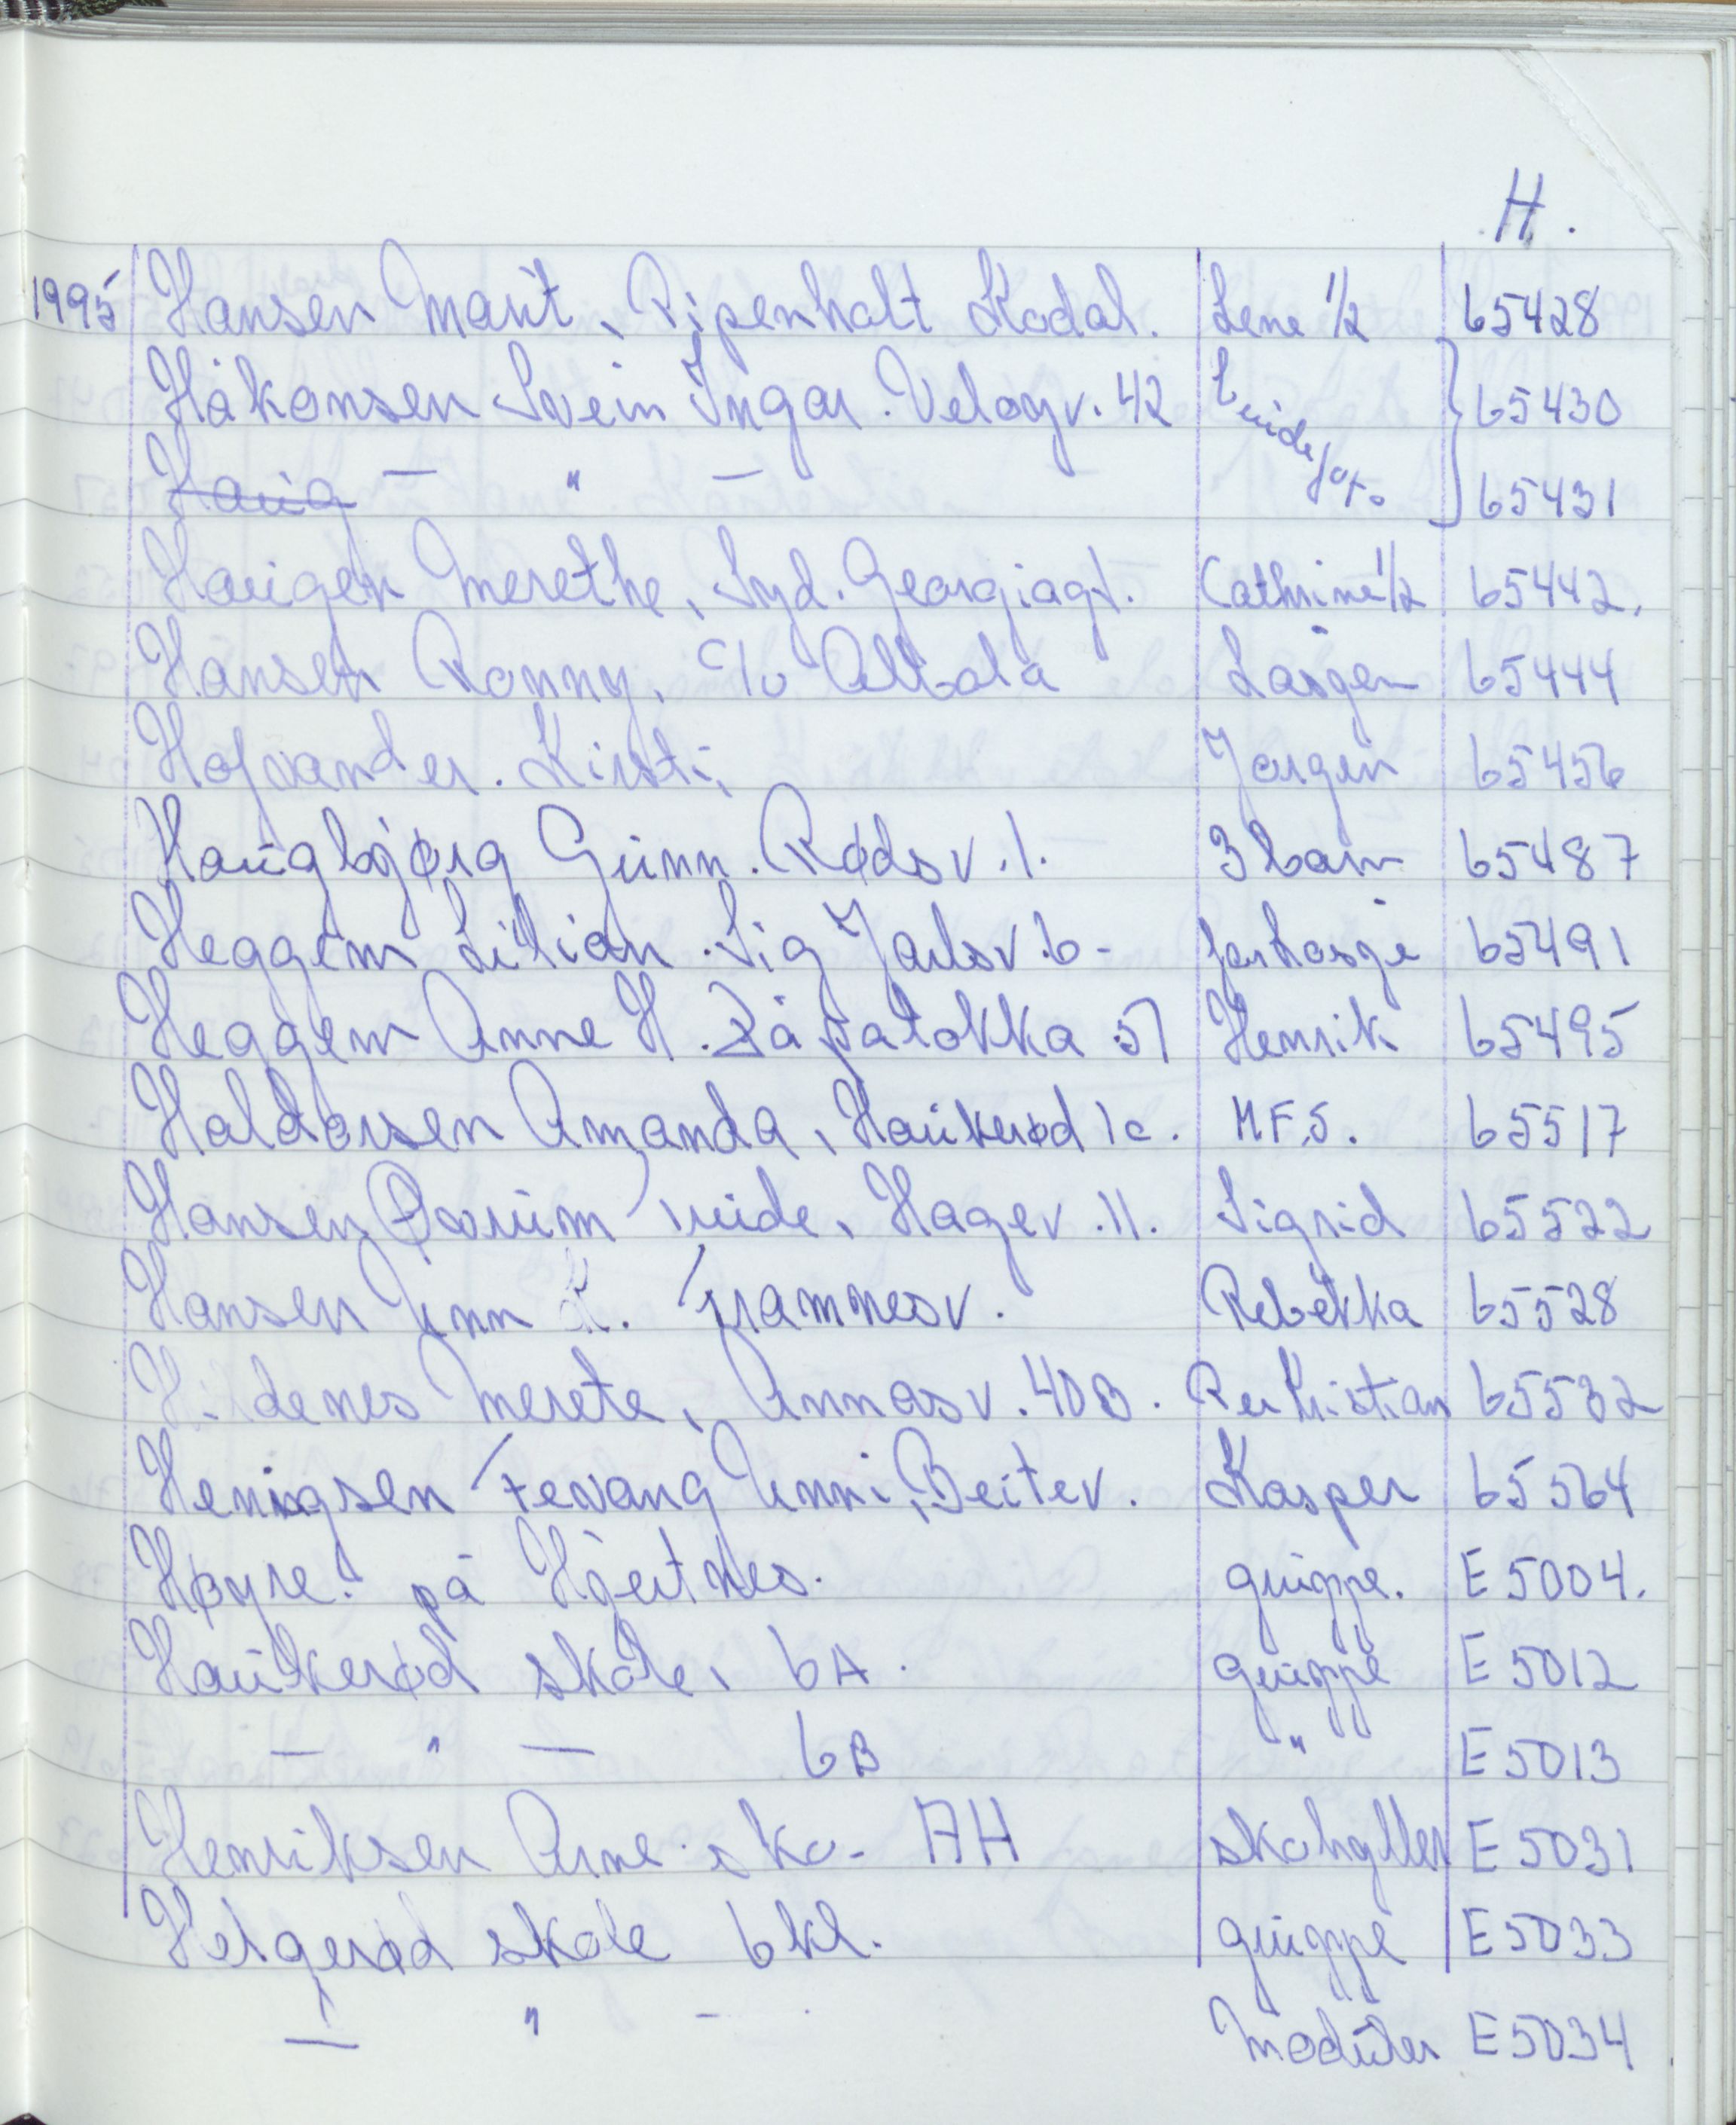 H.
1995 Hansen Marit, Ripenholt Kodal. Lene 1/2 65428
Håkonsen Svein Ingar. Veløyv. 42 65430
Haug — " — 65431
Haugen Merethe, Syd. Georgiagt. Cathrine 1/2 65442.
Hansen Ronny, c/o Altola Jørgen 65444
Hofvander. Kirsti, Jørgen 65456
Haugbjørg Gunn. Rødsv. 1. 3 barn 65487
Heggem Lilian. Sig Jarlsv. 6- 65491
Heggem Anne H. Råstaløkka 51 Henrik 65495
Haldorsen Amanda, Haukerød 1c. M.F.S. 65517
Hansen Qvorum Vride, Hagev. 11. Sigrid 65522
Hansen Unn K. Framnesv. Rebekka 65528
Hildenes Merete, Annasv. 40B. Per Kristian 65532
Henigsen/Fevang Unni, Beitev. Kasper 65564
Høyre. på Hjertnes. gruppe. E 5004.
Haukerød skole, 6A. gruppe E 5012
— " — 6B " E 5013
Henriksen Arne. sko- AH skohyller E 5031
Helgerød skole 6kl. gruppe E 5033
— " - Moduler E 5034